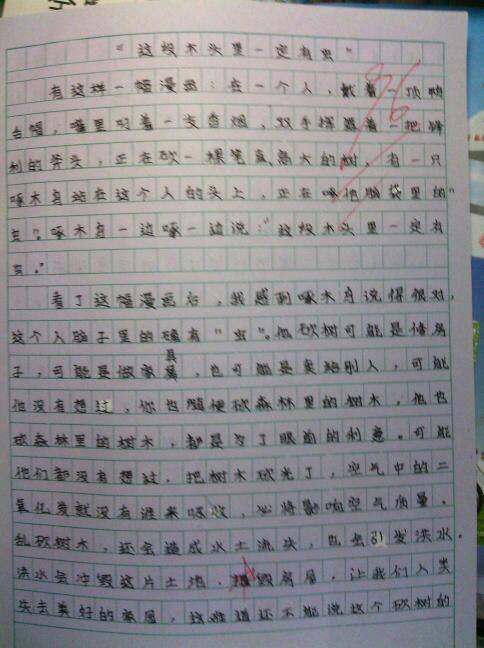 “这段木头里一定有虫”
有这样一幅漫画：在一个人，戴着一顶鸭
舌帽，嘴里叼着一支香烟，双手挥器着一把锋
利的斧头，正在砍一棵笔直高大的树，有一只
啄木鸟站在这个人的头上，正在啄他脑袋里的“
虫”。啄木鸟一边啄一边说：“这段木头里一定有
虫。”
看了这幅漫画后，我感到啄木鸟说得很对，
这个人脑子里的确有“虫”。他砍树可能是修房
子，可能是做家具，也可能是卖给别人，可能
他没有想过，你也随便砍森林里的树木，他也
砍森林里的树木，都是为了眼前的利意。可能
他们都没有想过，把树木砍光了，空气中的二
氧化炭就没有谁来吸收，必将影响空气质量。
乱砍树木，还会造成水土流失，也会引发洪水。
洪水会冲毁这片土地，毁房屋，让我们人类
失去美好的家居，这难道还不能说这个砍树的